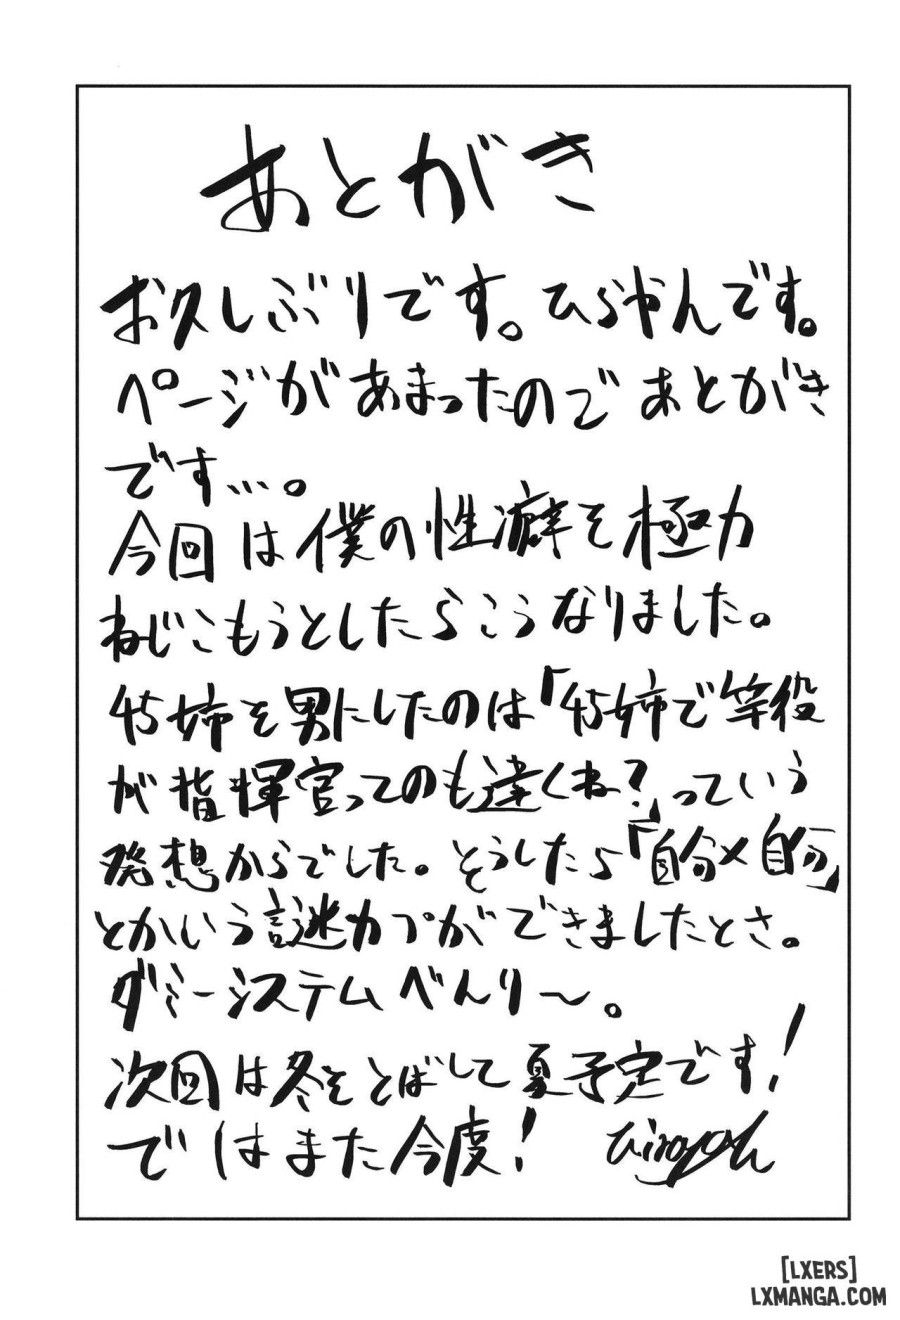 あとがき
お久しぶりです。ひらやんです。
ページがあまったのであとがき
です…。
今回は僕の性癖を極力
ねじこもうとしたらこうなりました。
姉を男にしたのは「姉で竿役
が指揮官ってのも違くね?」っていう
発想からでした。そうしたら「自分×自分」
とかいう謎カプができましたとさ。
ダミーシステムべんり〜。
次回は冬をとばして夏予定です!
ではまた今度!
[LXERS]
LXMANGA.COM